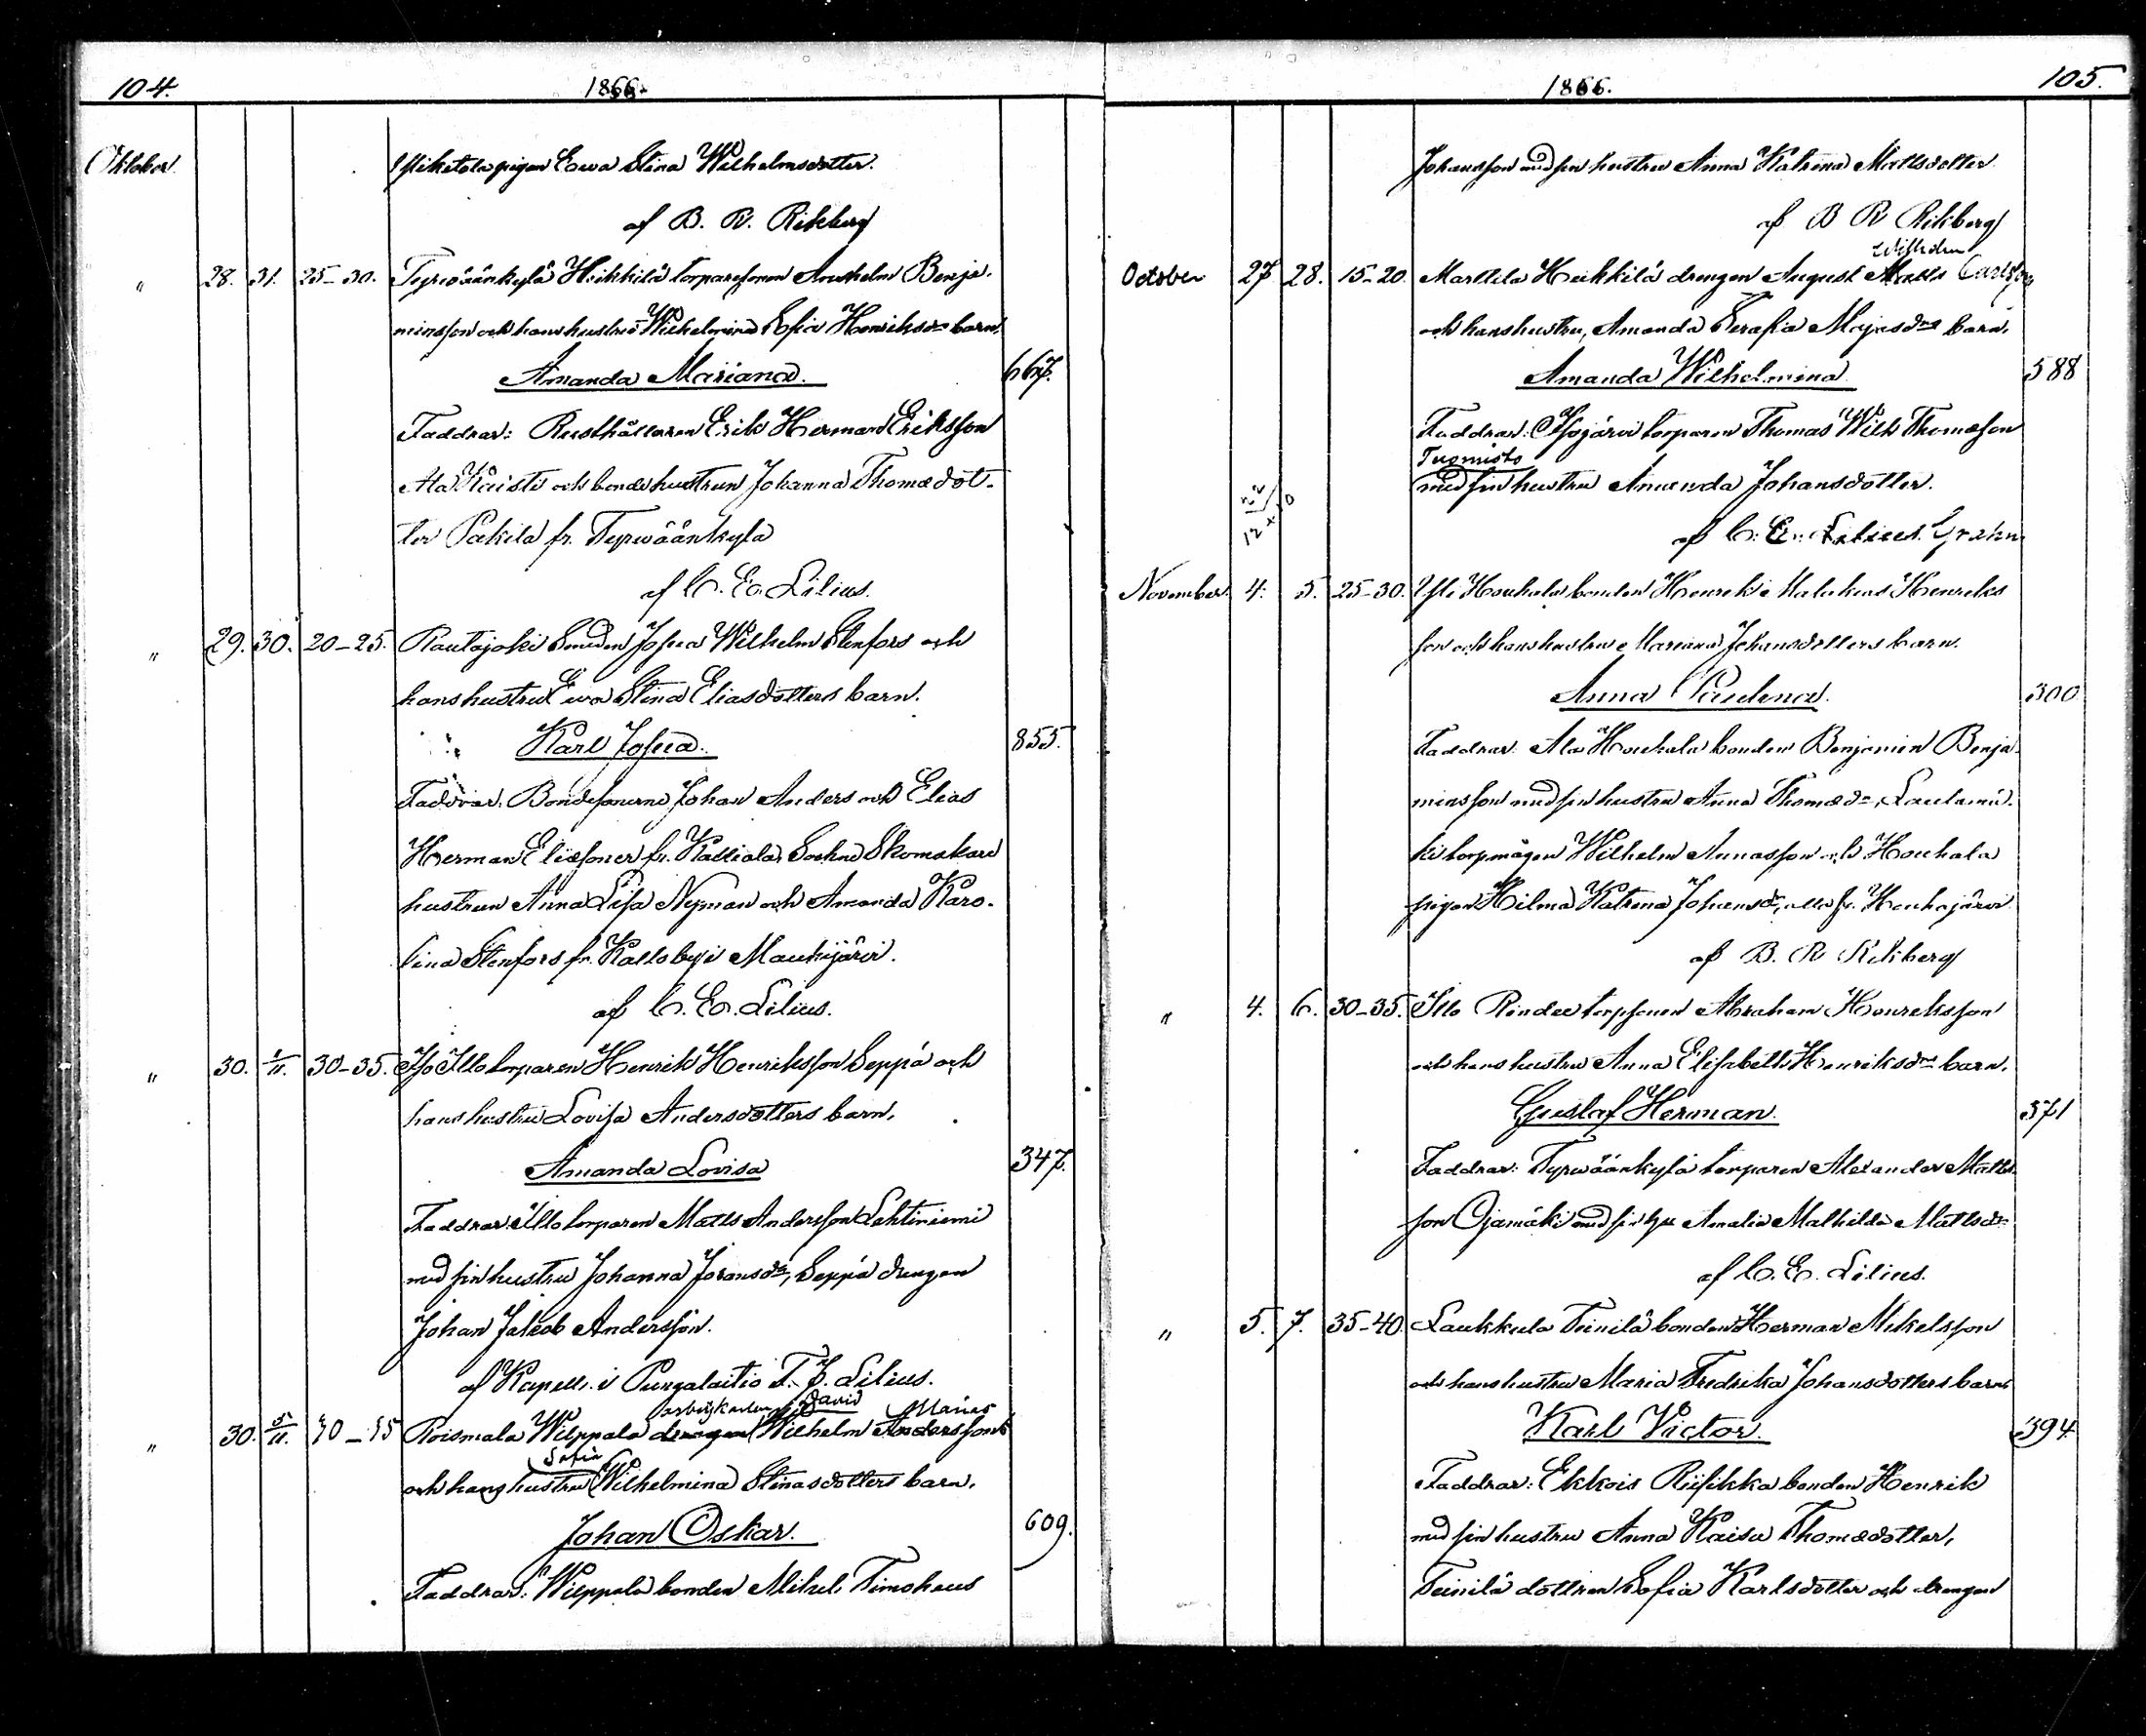 104.
1866.
Oktober
pigan Ewa Stina Wilhelmsdotter.
af B. R. Rikberg
" 28. 31. 25-30. Tyrwäänkylä Heikkilä torparesonen Anshelm Benja-
minsson och hans hustru Wilhelmina Sofia Henriksdrs barn,
Amanda Mariana. 667.
Faddrar: Rusthållaren Erik Herman Eriksson
Ala Kaisti och bondehustrun Johanna Thomædot-
ter Pakila fr. Tyrwäänkylä
af C. E. Lilius.
" 29. 30. 20-25. Rautajoki Smeden Josua Wilhelm Stenfors och
hans hustru Ewa Stina Eliasdotters barn.
Karl Josua. 855.
Faddrar: Bondesönerne Johan Anders och Elias
Herman Eliæsöner fr. Kalliala, Sockne Skomakare
hustrun Anna Lisa Nyman och Amanda Karo-
lina Stenfors fr. Kallsby i Mauhijärvi.
af C. E. Lilius.
" 30. 1/11. 30-35. Iso Illo torparen Henrik Henriksson Seppä och
hans hustru Lovisa Andersdotters barn,
Amanda Lovisa 347.
Faddrar: Illo torparen Matts Andersson Lehtiniemi
med sin hustru Johanna Joransdr, Seppä drengen
Johan Jakob Andersson.
af Kapell. i Pungalaitio T. J. Lilius.
David Marias
" 30. 5/11. Roismala Wilppala drengen Wilhelm Anderssons
Sofia
och hans hustru Wilhelmina Stinasdotters barn,
Johan Oskar. 609.
Faddrar: Wilppala bonden Mikel Timoheus
1866.
105.
Johansson med sin hustru Anna Katrina Mattsdotter
af B R Rikberg
Wilhelm
October 27 28. 15-20. Marttila Heikkilä drengen August Matts Carlsson
och hans hustru, Amanda Serafia Majasdrs barn,
Amanda Wilhelmina 588
Faddrar: torparen Thomas Wilh Thomasson
Tuomisto
med sin hustru Amanda Johansdotter.
af C. E. Lilius. Grahn
November 4. 5. 25-30. Houhala bonden Henrik Malakias Henriks
son och hans hustru Mariana Johansdotters barn.
Anna Paulina. 300
Faddrar: Ala Houhala bonden Benjamin Benja-
minsson med sin hustru Anna Thomædr, Lautamä-
ki torpmågen Wilhelm Annasson och Houhala
pigan Hilma Katrina Johansdr, alla fr. Houhajärvi
af B. R Rikberg
" 4. 6. 30-35. Illo Rindee torpsonen Abraham Henriksson
och hans hustru Anna Elisabeth Henriksdrs barn,
Gustaf Herman. 371
Faddrar: Tyrwäänkylä torparen Alexander Matts-
son Ojamäki med sin hu Amalia Mathilda Mattsdr
af C. E. Lilius.
" 5. 7. 35-40. Laukkula Teinilä bonden Herman Mikelsson
och hans hustru Maria Fredrika Johansdotters barn
Karl Victor. 394
Faddrar: Ekkois Riippikka bonden Henrik
med sin hustru Anna Kaisa Thomædotter,
Teinilä dottren Sofia Karlsdotter och drengen